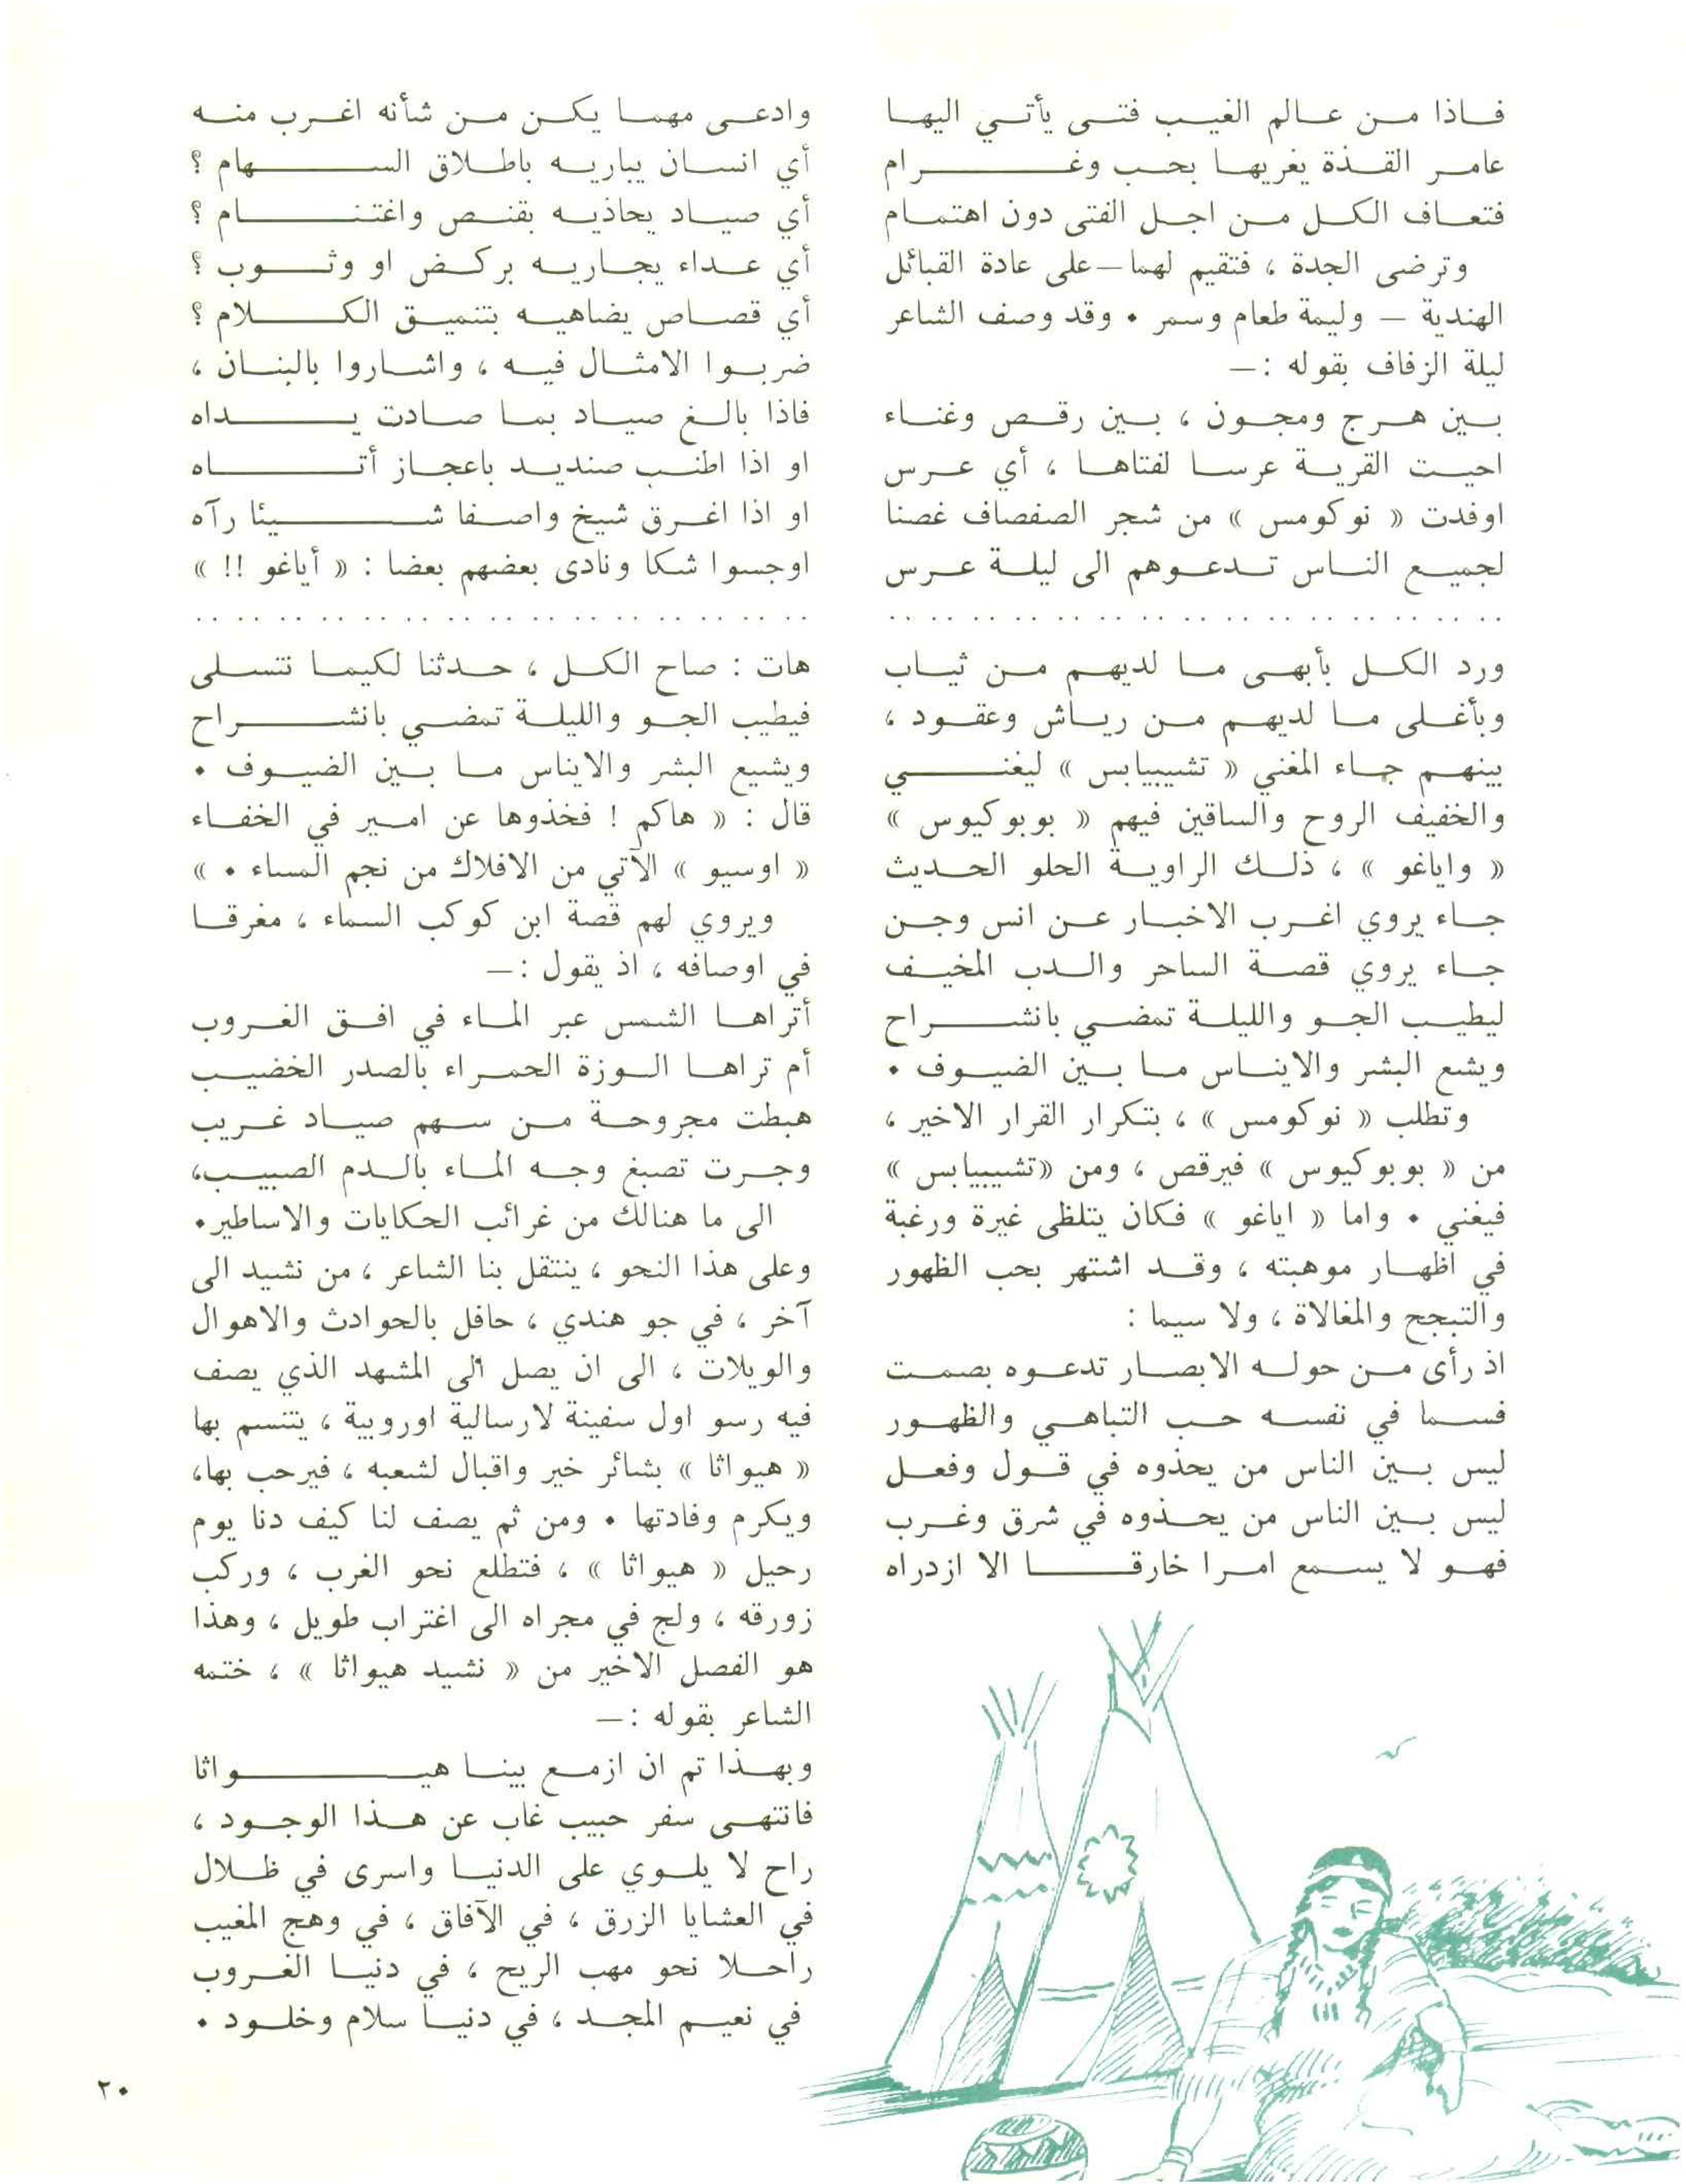 فاذا من عالم الغيب فتى يأتي اليها
عامر القذة يغريها بحب وغرام
فتعاف الكل من اجل الفتى دون اهتمام
وترضى الجدة ، فتقيم لهما — على عادة القبائل
الهندية — وليمة طعام وسمر . وقد وصف الشاعر
ليلة الزفاف بقوله :—
بين هرج ومجون ، بين رقص وغناء
احيت القرية عرسا لفتاها ، أي عرس
اوفدت « نوكومس » من شجر الصفصاف غصنا
لجميع الناس تدعوهم الى ليلة عرس
. . . . . . . . . . . . . . . . . . . . . . . . . . . . . .
ورد الكل بأبهى ما لديهم من ثياب
وبأغلى ما لديهم من رياش وعقود ،
بينهم جاء المغني « تشيبيابس » ليغني
والخفيف الروح والساقين فيهم « بوبوكيوس »
« واياغو » ، ذلك الراوية الحلو الحديث
جاء يروي اغرب الاخبار عن انس وجن
جاء يروي قصة الساحر والدب المخيف
ليطيب الجو والليلة تمضي بانشراح
ويشع البشر والايناس ما بين الضيوف .
وتطلب « نوكومس » ، بتكرار القرار الاخير ،
من « بوبوكيوس » فيرقص ، ومن «تشيبيابس »
فيغني . واما « اياغو » فكان يتلظى غيرة ورغبة
في اظهار موهبته ، وقد اشتهر بحب الظهور
والتبجح والمغالاة ، ولا سيما :
اذ رأى من حوله الابصار تدعوه بصمت
فسما في نفسه حب التباهي والظهور
ليس بين الناس من يحذوه في قول وفعل
ليس بين الناس من يحذوه في شرق وغرب
فهو لا يسمع امرا خارقا الا ازدراه
وادعى مهما يكن من شأنه اغرب منه
أي انسان يباريه باطلاق السهام ؟
أي صياد يحاذيه بقنص واغتنام ؟
أي عداء يجاريه بركض او وثوب ؟
أي قصاص يضاهيه بتنميق الكلام ؟
ضربوا الامثال فيه ، واشاروا بالبنان ،
فاذا بالغ صياد بما صادت يداه
او اذا اطنب صنديد باعجاز أتاه
او اذا اغرق شيخ واصفا شيئا رآه
اوجسوا شكا ونادى بعضهم بعضا : « أياغو !! »
. . . . . . . . . . . . . . . . . . . . . . . . . . . . . .
هات : صاح الكل ، حدثنا لكيما نتسلى
فيطيب الجو والليلة تمضي بانشراح
ويشيع البشر والايناس ما بين الضيوف .
قال : « هاكم ! فخذوها عن امير في الخفاء
« اوسيو » الآتي من الافلاك من نجم المساء . »
ويروي لهم قصة ابن كوكب السماء ، مغرقا
في اوصافه ، اذ يقول :—
أتراها الشمس عبر الماء في افق الغروب
أم تراها الوزة الحمراء بالصدر الخضيب
هبطت مجروحة من سهم صياد غريب
وجرت تصبغ وجه الماء بالدم الصبيب،
الى ما هنالك من غرائب الحكايات والاساطير.
وعلى هذا النحو ، ينتقل بنا الشاعر ، من نشيد الى
آخر ، في جو هندي ، حافل بالحوادث والاهوال
والويلات ، الى ان يصل الى المشهد الذي يصف
فيه رسو اول سفينة لارسالية اوروبية ، يتنسم بها
« هيواثا » بشائر خير واقبال لشعبه ، فيرحب بها،
ويكرم وفادتها . ومن ثم يصف لنا كيف دنا يوم
رحيل « هيواثا » ، فتطلع نحو الغرب ، وركب
زورقه ، ولج في مجراه الى اغتراب طويل ، وهذا
هو الفصل الاخير من « نشيد هيواثا » ، ختمه
الشاعر بقوله :—
وبهذا تم ان ازمع بينا هيواثا
فانتهى سفر حبيب غاب عن هذا الوجود ،
راح لا يلوي على الدنيا واسرى في ظلال
في العشايا الزرق ، في الآفاق ، في وهج المغيب
راحلا نحو مهب الريح ، في دنيا الغروب
في نعيم المجد ، في دنيا سلام وخلود .
٢٠